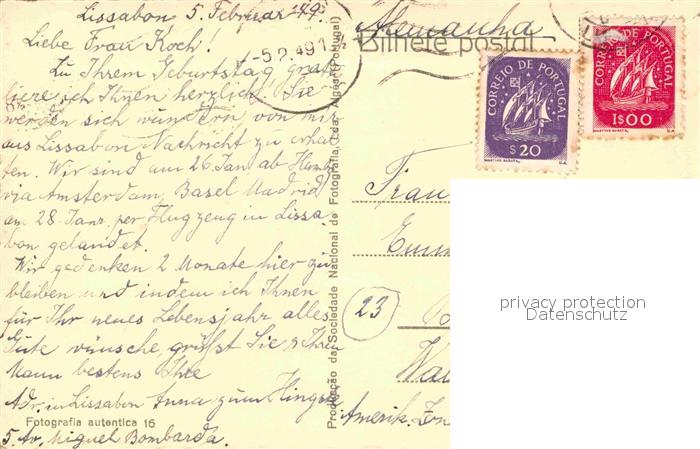 Lissabon 5. Februar 49.
Liebe Frau Koch!
Zu Ihrem Geburtstag gratu
liere ich Ihnen herzlich. Sie
werden sich wundern von mir
aus Lissabon Nachricht zu erhal
ten. Wir sind am 26. Jan. ab Hambg
via Amsterdam, Basel Madrid
am 28. Janr. per Flugzeug in Lissa-
bon gelandet.
Wir gedenken 2 Monate hier zu
bleiben und indem ich Ihnen
für Ihr neues Lebensjahr alles
Gute wünsche, grüßt Sie & Ihren
Mann bestens Ihre
Anna zum Hingste
Adr. in Lissabon
5. Av. Miguel Bombarda.
Fotografia autentica 16
Produção da Sociedade Nacional de Fotografia, Lda. Algés (Portugal)
-5.2.49
Bilhete postal
Alemanha
CORREIO DE PORTUGAL
$20
MARTINS BARATA
CORREIO DE PORTUGAL
1$00
MARTINS BARATA
Frau
23
Amerik. Zon
privacy protection
Datenschutz